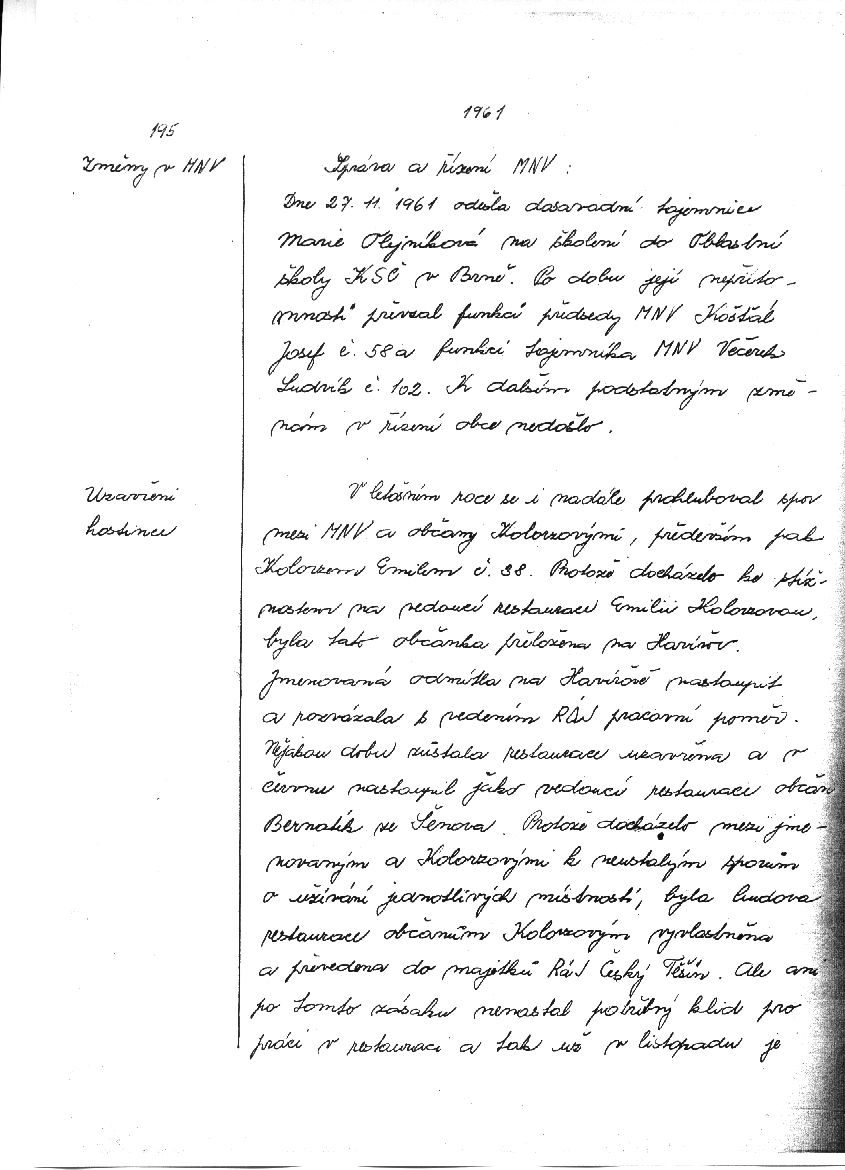 1961
195
Změny v MNV
Správa a řízení MNV :
Dne 27. 11. 1961 odešla dosavadní tajemnice
Marie Olejníková na školení do Oblastní
školy KSČ v Brně. Po dobu její nepříto-
mnosti převzal funkci předsedy MNV Košťál
Josef č. 58 a funkci tajemníka MNV Večerek
Ludvík č. 102. K dalším podstatným změ-
nám v řízení obce nedošlo.
Uzavření
hostince
V letošním roce se i nadále prohluboval spor
mezi MNV a občany Kolorzovými, především pak
Kolorzem Emilem č. 38. Protože docházelo ke stíž-
nostem na vedoucí restaurace Emilii Kolorzovou,
byla tato občanka přeložena na Havířov.
Jmenovaná odmítla na Havířově nastoupit
a rozvázala s vedením RaJ pracovní poměr.
Nějakou dobu zůstala restaurace uzavřena a v
červnu nastoupil jako vedoucí restaurace občan
Bernatík ze Šenova. Protože docházelo mezi jme-
novaným a Kolorzovými k neustalým sporům
o užívání jednotlivých místností, byla budova
restaurace občanům Kolorzovým vyvlastněna
a převedena do majetků RaJ Český Těšín. Ale ani
po tomto zásaku nenastal potřebný klid pro
práci v restauraci a tak už v listopadu je